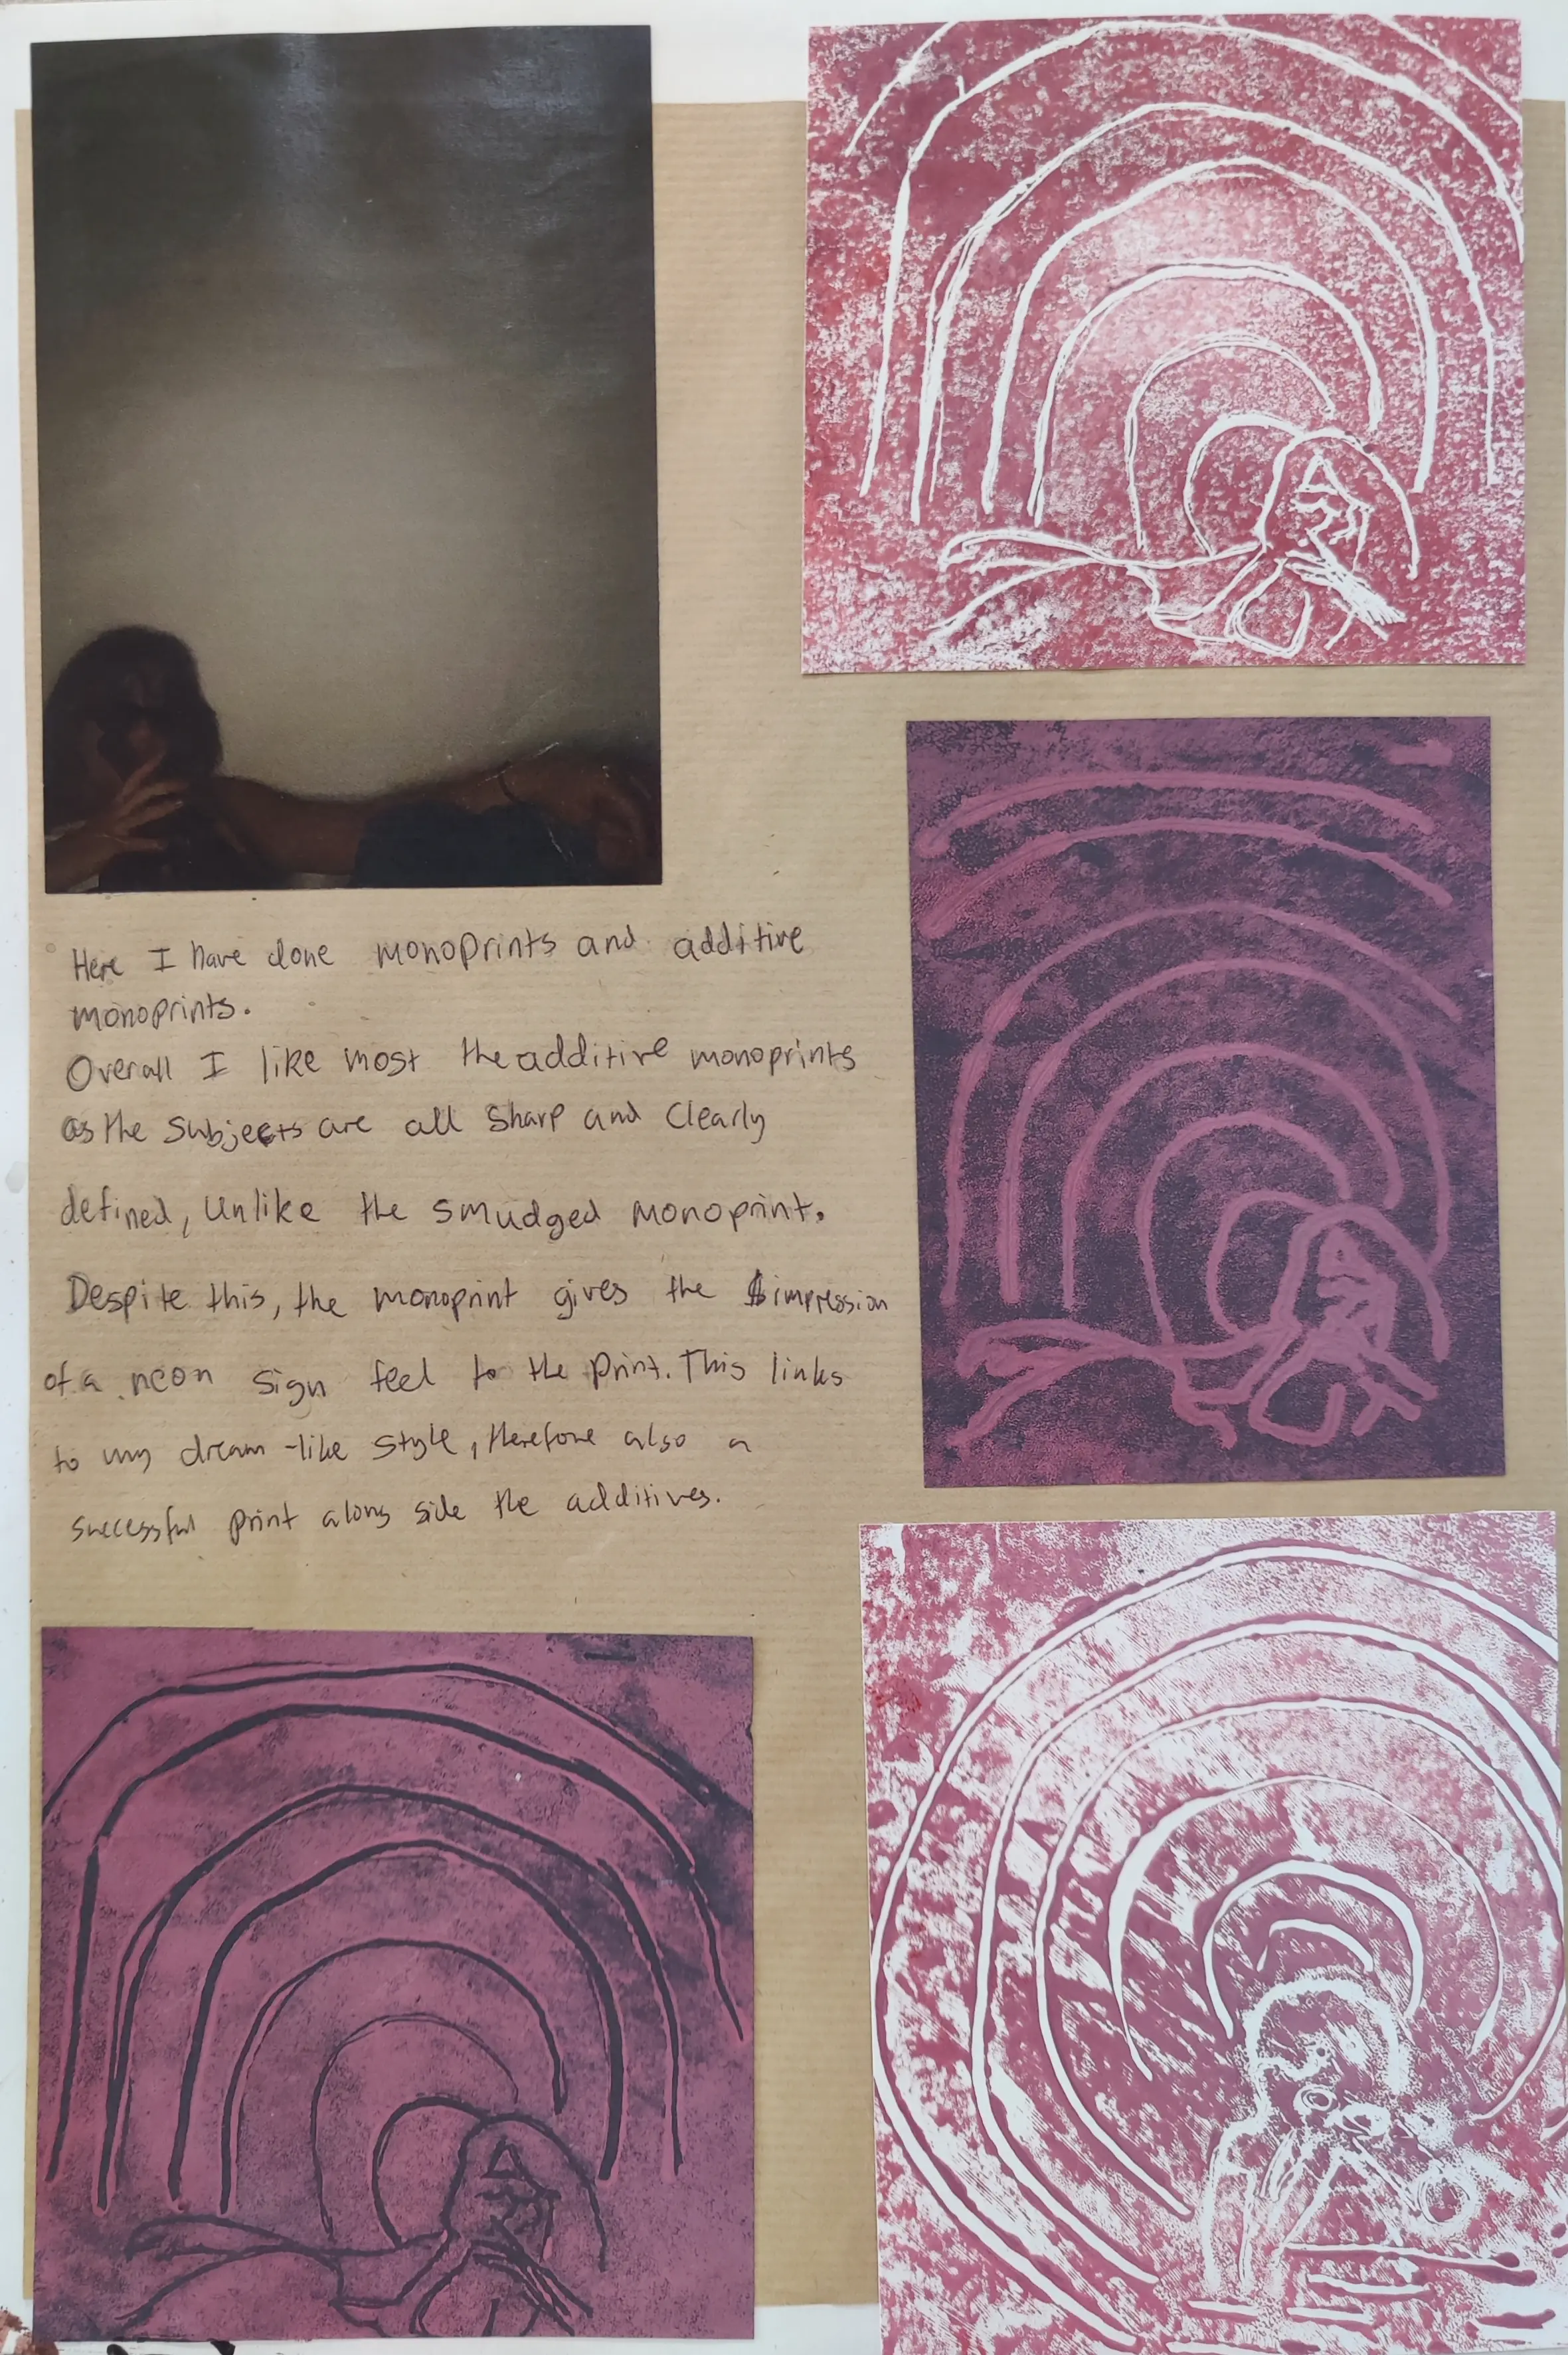 Here I have done monoprints and additive
monoprints.
Overall I like most the additive monoprints
as the subjects are all sharp and clearly
defined, unlike the smudged monoprint.
Despite this, the monoprint gives the impression
of a neon sign feel to the print. This links
to my dream-like style, therefore also a
successful print along side the additives.